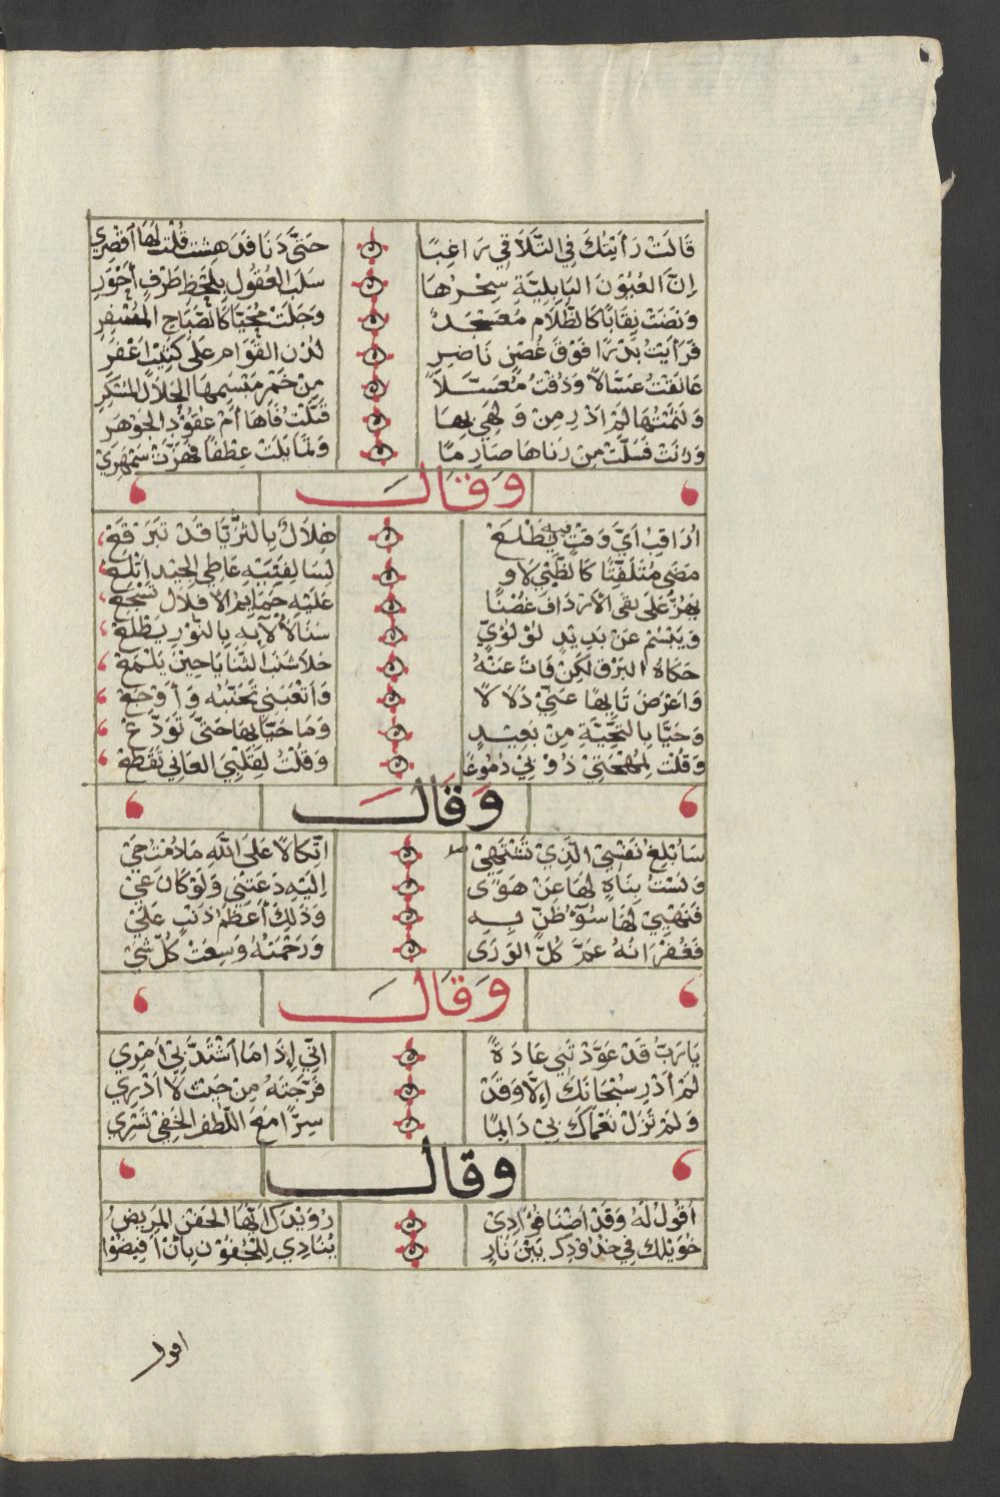 قَالَتْ رَأَيْتُكَ فِي التَّلَاقِي رَاغِبًا حَتَّى دَنَا قَدَ هِشت قُلْت لَهَا أَقْصِرِي
اِنَّ العُيُوْنَ البَابِلِيَّةِ سِحْرُهَا سَلَبَ العُقُولِ بِلَحْظِ طَرْفٍ أَحْوَرِ
وَنَضَتْ نِقَابًا كَالظَّلَامِ مُعَسْجَدٌ وَجَلَتْ مُحَيًّا كَالصَّبَاحِ المُسْفِرِ
فَرَأَيْت بَدْرًا فَوْقَ غُصْنٍ نَاضِرِ لَدْنِ القَوَامِ عَلَى كَثِيْبٍ اعْفَرُ
عَانَقْتُ عَسَّالًا وَذُقْتُ مُعَسَّلًا مِنْ خَمْرِ مَبْسَمِهَا الحَلَالِ المُسْكِرِ
وَلَثَمْتُهَا لَمْ اَدْرِ مِنْ وَلَهِي بِهَا قَبَّلْتُ فَاهَا أَمْ عُقُوْدَ الجَوْهَرِ
وَرَنَتْ فَسَلَّتْ مِنْ رَنَاهَا صَارِمًا وَتَمَايَلَتْ عِطْفًا فَهَزَّتْ سَمْهَرِي
وَقَالَ
اُرَاقِبُ اَيَّ وَقْتٍ فيه يَطْلَعْ هِلَالٌ بِالثُّرَيَّا قَدْ تَبَرْقَعْ
مَضَى مُتَلَفِّتًا كَالظَّبْيِ لَاو لِسَالِفَتَيْهِ عَاطِي الجِيْدِ اَتْلَعْ
يَهُزُّ عَلَى نَقَى الأَرْدَافِ غُصْنًا عَلَيْهِ حَمَايِمُ الأَقْلَالِ تَسْجَعْ
وَيَبْسُمُ عَنْ بَدِيْدٍ لُؤْلُؤِيٍّ سَنَا لَأْلَآيِهِ بِالنُّوْرِ يَطْلَعْ
حَكَاهُ البَرْقُ لَكِنْ فَاتَ عَنْهُ حَلَا شَنَبَ الثَّنَايَا حِيْنَ يَلْمَعْ
وَاَعْرَضَ تَايِهًا عَنِّي دَلَالًا وَاَتْعَبَنِي تَجَنُّبُه وَأَوْجَعْ
وَحَيَّا بِالتَّحِيَّةِ مِنْ بَعِيْدٍ وَمَا حَيَّا بِهَا حَتَّى تَوَدَّعْ
وَقُلْتُ لِمُهْجَتِيْ ذُوْبِيْ دُمُوْعًا وَقُلْتُ لِقَلْبِي العَانِي تَقَطَّعْ
وَقَالَ
سَأُبْلِغُ نَفْسِيْ الَّذِيْ تَشْتَهِيْ اتِّكَالًا عَلَى اللّٰهِ مَادُمْتُ حَيْ
وَلَسْتُ بِنَاهٍ لَهَا عَنْ هَوًى اِلَيْهِ دَعَتْنِي وَلَوْ كَانَ غَيْ
فَنَهْيِيْ لَهَا سُوْءُ ظَنٍّ بِهِ وَذَلِكَ أَعْظَمُ ذَنْبٍ عَلَيْ
فَغُفْرَانُهُ عَمَّ كُلَّ الوَرَى وَرَحْمَتُهُ وَسِعَتْ كُلَّ شَيْ
وَقَالَ
يَارَبِّ قَدْ عَوَّدْتَنِي عَادَةً اِنِّي إِذَا مَا اَشْتَدَّ بِيْ اَمْرِي
لَمْ أَدْرِ سُبْحَانَكَ إِلَّا وَقَدْ فَرَّجْتَهُ مِنْ حَيْثُ لَا أَدْرِي
وَلَمْ تَزَلْ نَعْمَاكَ بِيْ دَايِمًا سِرًّا مَعَ اللُّطْفِ الخَفِيْ تَسْرِي
وقال
اَقُوْلُ لَهُ وَقَدْ اَضْنَا فُؤَادِيْ رُوَيْدَكَ اَيُّهَا الجَفْنُ المَرِيْضُ
خُوَيْلُكَ فِي خُدُوْدِكَ بَيْنَ نَارٍ يُنَادِي لِلْجُفُوْنِ بِأَنْ اَفِيْضُوْا
اقول